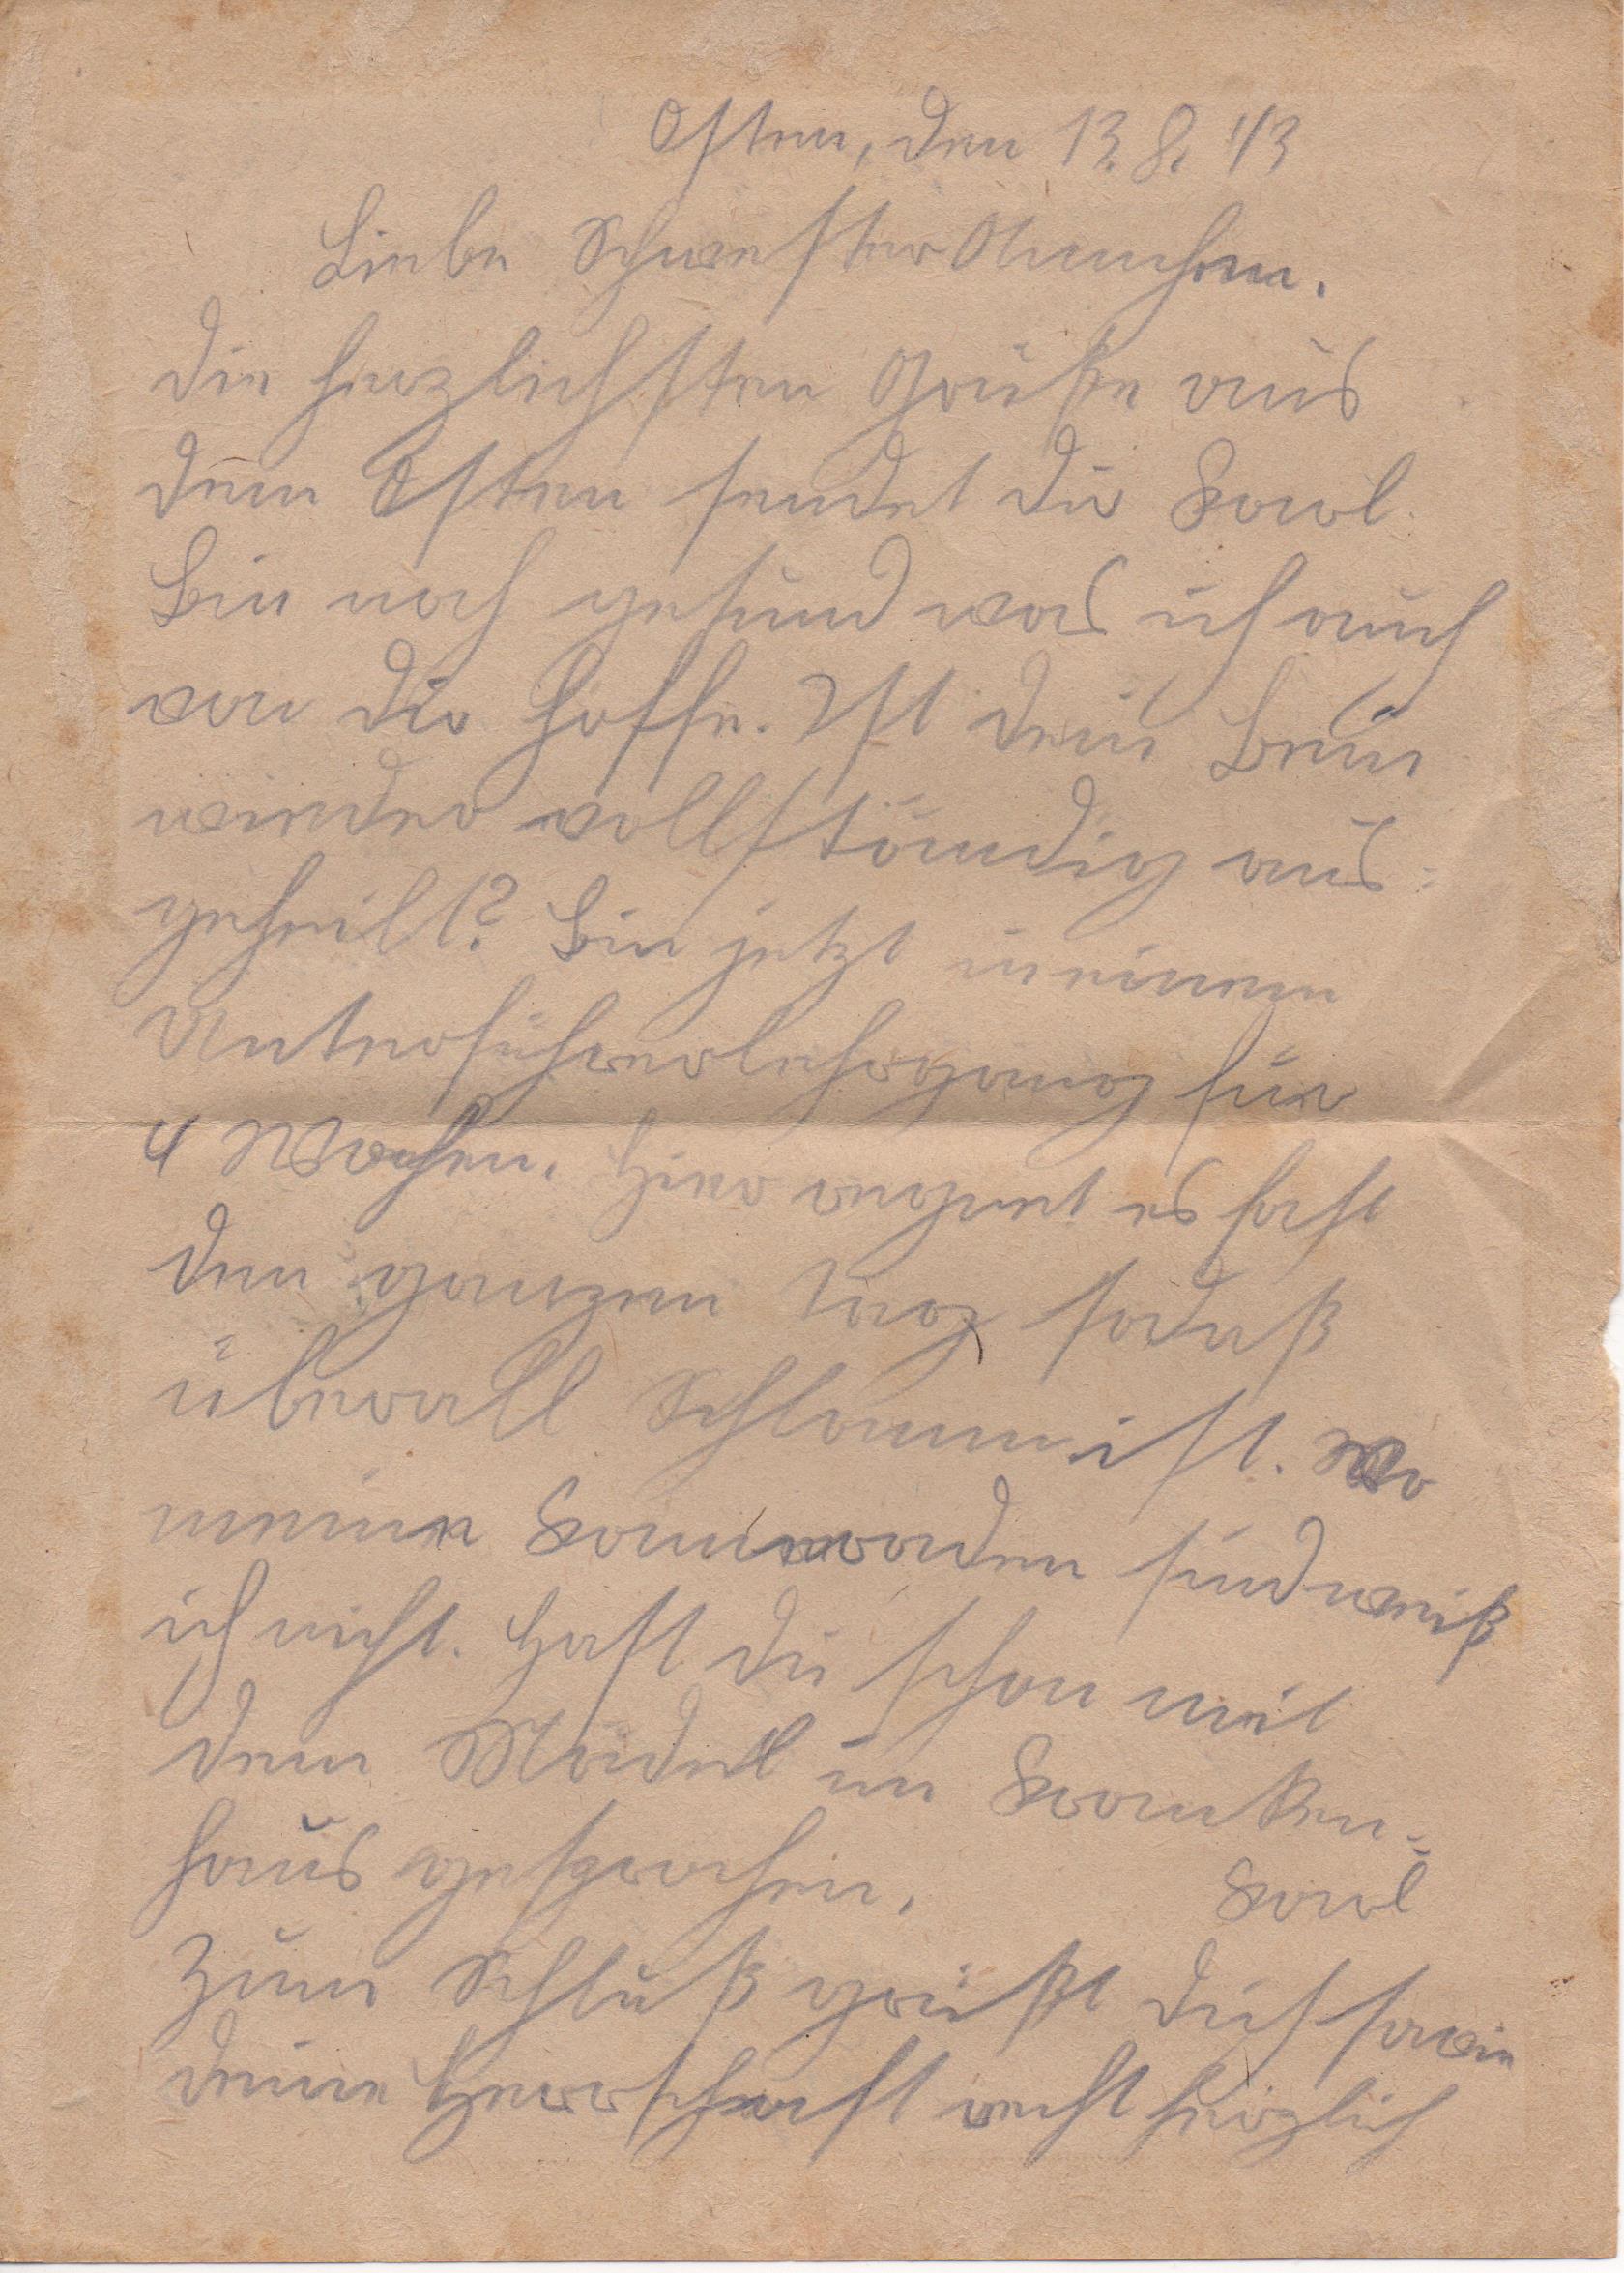 Osten, den 13. 8. 43
Liebe Schwester Annchen.
Die herzlichsten Grüße aus
dem Osten sendet dir Karl.
Bin noch gesund was ich auch
von dir hoffe. Ist dein Bein
wieder vollständig aus-
geheilt? Bin jetzt in einem
Unterführerlehrgang für
4 Wochen. Hier regnet es fast
den ganzen Tag sodaß
überall Schlamm ist. Wo
meine Kameraden sind weiß
ich nicht. Hast du schon mit
dem Mädel im Kranken-
haus gesprochen.
Karl
Zum Schluß grüßt dich sowie
deine Herrschaft recht herzlich